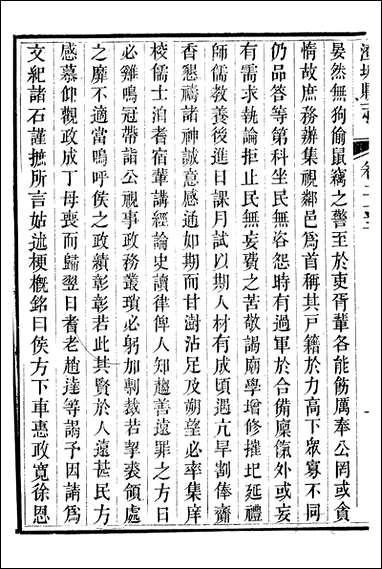 晏然無狗偷鼠竊之警至於吏胥輩各能飭厲奉公罔或貪
惰故庶務辦集視鄰邑爲首稱其戸籍於力高下眾寡不同
仍品答等第科坐民無咨怨時有過軍於合備廩餼外或妄
有需求執論拒止民無妄費之苦敬謁廟學增修摧圮延禮
師儒教養後進日課月試以期人材有成頃遇亢旱割俸齋
香懇禱諸神誠意感通如期而甘澍沾足及朔望必率集庠
校儒士泊耆宿輩講經論史讀律俾人知趨善遠罪之方日
必雞鳴冠帶詣公視事政務叢瑣必躬加剸裁若挈裘領處
之靡不適當嗚呼侯之政績彰彰若此其賢於人遠甚民方
感慕仰觀政成丁母喪而歸翌日耆老趙達等謁予因請爲
文紀諸石謹摭所言姑述梗概銘曰侯方下車惠政寬徐恩